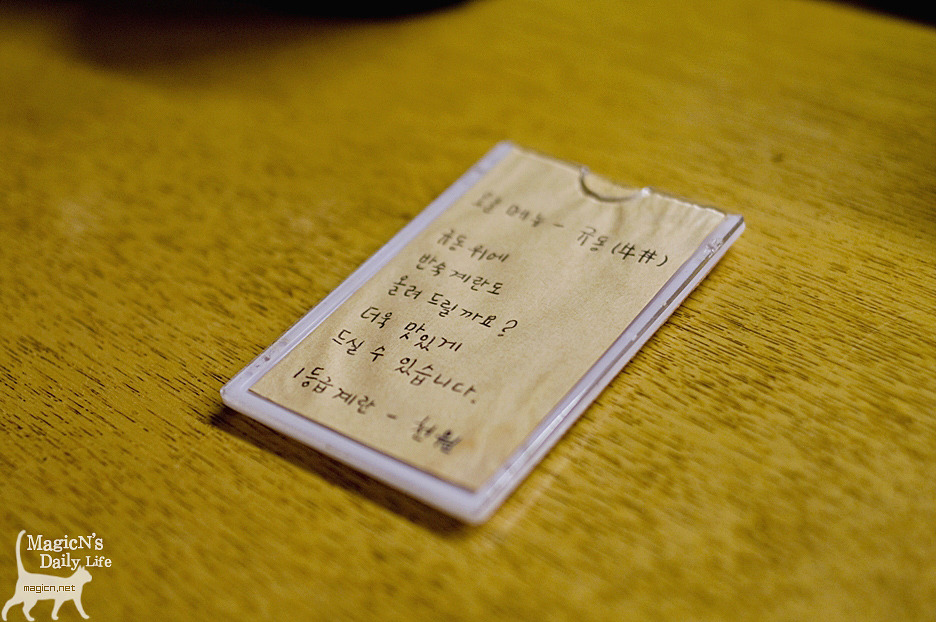 메뉴 - 규동 (牛井)
규동 위에
반숙 계란도
올려 드릴까요?
더욱 맛있게
드실 수 있습니다.
1등급 계란 - 천원
MagicN's
Daily Life
magicn.net